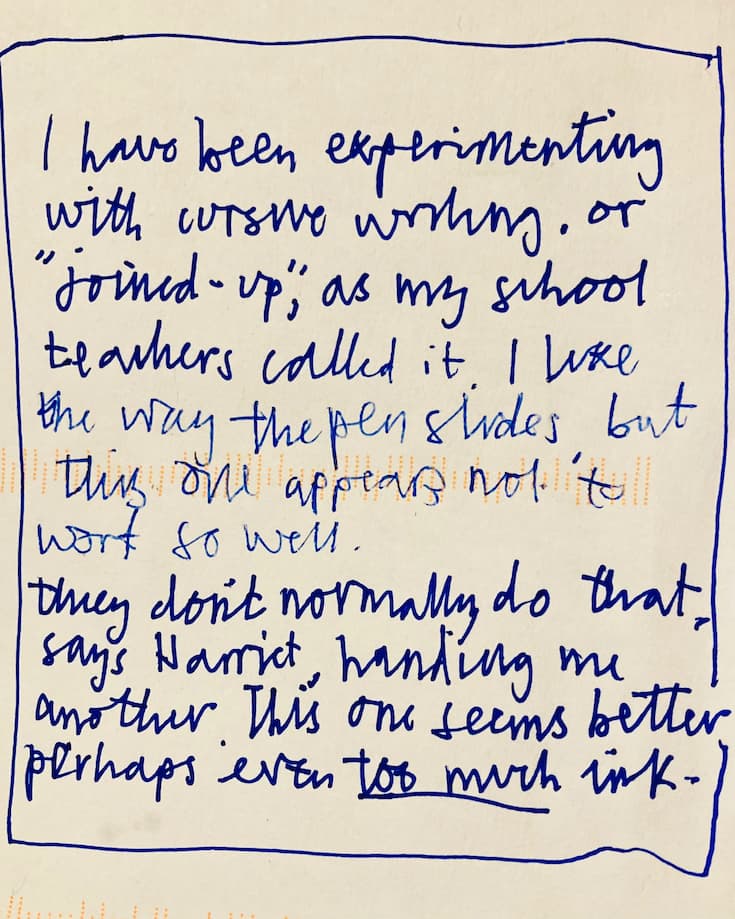 I have been experimenting
with cursive writing. or
"joined-up", as my school
teachers called it. I like
the way the pen slides but
this one appears not to
work so well.
they don't normally do that,
says Harriet, handing me
another. This one seems better
perhaps even too much ink.